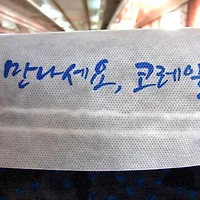 만나세요, 코레일